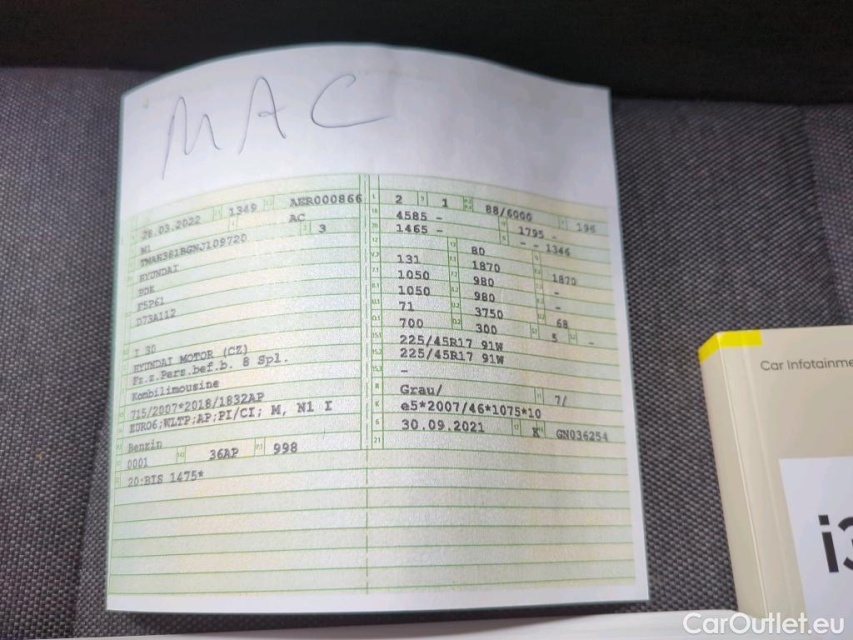 MAC
28.03.2022 1349 AER000866
M1 AC
TMAH381BGNJ109720 3
HYUNDAI
PDE
F5P61
D73A112
I 30
HYUNDAI MOTOR (CZ)
Fz.z.Pers.bef.b. 8 Spl.
Kombilimousine
715/2007*2018/1832AP
EURO6;WLTP;AP;PI/CI; M, N1 I
Benzin
0001 36AP 998
20:BIS 1475*
2 1 88/6000 196
4585 - 1795 -
1465 - - - 1346
80
131 1870 1870
1050 980 -
1050 980 -
71 3750 68
700 300 5 -
225/45R17 91W
225/45R17 91W
-
Grau/ 7/
e5*2007/46*1075*10
30.09.2021 K GN036254
Car Infotainme
i3
CarOutlet.eu